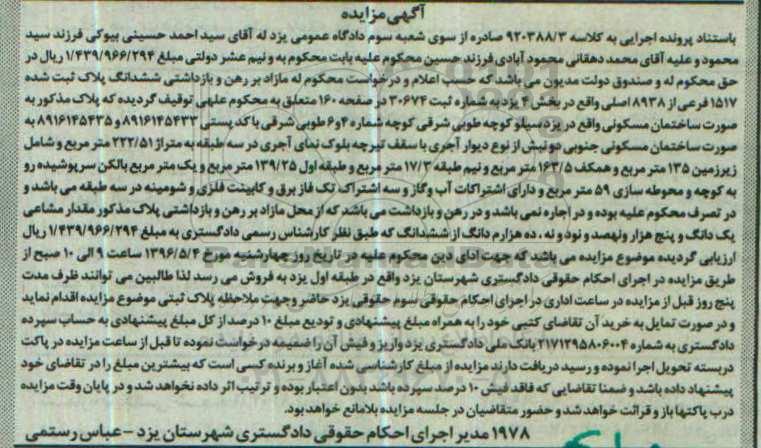 آگهی مزایده
باستناد پرونده اجرایی به کلاسه ۹۲۰۳۸۸/۳ صادره از سوی شعبه سوم دادگاه عمومی یزد له آقای سید احمد حسینی بیوکی فرزند سید
محمود و علیه آقای محمد دهقانی محمود آبادی فرزند حسین محکوم علیه بابت محکوم به و نیم عشر دولتی مبلغ ۱/۴۳۹/۹۶۶/۲۹۴ ریال در
حق محکوم له و صندوق دولت مدیون می باشد که حسب اعلام و درخواست محکوم له مازاد بر رهن و بازداشتی ششدانگ پلاک ثبت شده
۱۵۱۷ فرعی از ۸۹۳۸ اصلی واقع در بخش ۴ یزد به شماره ثبت ۳۰۶۷۴ در صفحه ۱۶۰ متعلق به محکوم علهی توقیف گردیده که پلاک مذکور به
صورت ساختمان مسکونی واقع در یزد سیلو کوچه طوبی شرقی کوچه شماره ۴ و ۶ طوبی شرقی با کد پستی ۸۹۱۶۱۴۵۴۳۳ و ۸۹۱۶۱۴۵۴۳۵ به
صورت ساختمان مسکونی جنوبی دو نبش از نوع دیوار آجری با سقف تیرچه بلوک نمای آجری در سه طبقه به متراژ ۲۲۲/۵۱ متر مربع و شامل
زیرزمین ۱۳۵ متر مربع و همکف ۱۶۳/۵ متر مربع و نیم طبقه ۱۷/۳ متر مربع و طبقه اول ۱۳۹/۲۵ متر مربع و یک متر مربع بالکن سرپوشیده رو
به کوچه و محوطه سازی ۵۹ متر مربع و دارای اشتراکات آب و گاز و سه اشتراک تک فاز برق و کابینت فلزی و شومینه در سه طبقه می باشد و
در تصرف محکوم علیه بوده و در اجاره نمی باشد و در رهن و بازداشت می باشد که از محل مازاد بر رهن و بازداشتی پلاک مذکور مقدار مشاعی
یک دانگ و پنج هزار ونهصد و نود و نه ، ده هزارم دانگ از ششدانگ که طبق نظر کارشناس رسمی دادگستری به مبلغ ۱/۴۳۹/۹۶۶/۲۹۴ ریال
ارزیابی گردیده موضوع مزایده می باشد که جهت ادای دین محکوم علیه در تاریخ روز چهارشنبه مورخ ۱۳۹۶/۵/۴ ساعت ۹ الی ۱۰ صبح از
طریق مزایده در اجرای احکام حقوقی دادگستری شهرستان یزد واقع در طبقه اول یزد به فروش می رسد لذا طالبین می توانند ظرف مدت
پنج روز قبل از مزایده در ساعت اداری در اجرای احکام حقوقی سوم حقوقی یزد حاضر وجهت ملاحظه پلاک ثبتی موضوع مزایده اقدام نماید
و در صورت تمایل به خرید آن تقاضای کتبی خود را به همراه مبلغ پیشنهادی و تودیع مبلغ ۱۰ درصد از کل مبلغ پیشنهادی به حساب سپرده
دادگستری به شماره ۲۱۷۱۲۹۵۸۰۶۰۰۴ بانک ملی دادگستری یزد واریز و فیش آن را ضمیمه درخواست نموده تا قبل از ساعت مزایده در پاکت
دربسته تحویل اجرا نموده و رسید دریافت دارند مزایده از مبلغ کارشناسی شده آغاز و برنده کسی است که بیشترین مبلغ را در تقاضای خود
پیشنهاد داده باشد و ضمنا تقاضایی که فاقد فیش ۱۰ درصد سپرده باشد بدون اعتبار بوده و ترتیب اثر داده نخواهد شد و در پایان وقت مزایده
درب پاکتها باز و قرائت خواهد شد و حضور متقاضیان در جلسه مزایده بلامانع خواهد بود.
۱۹۷۸ مدیر اجرای احکام حقوقی دادگستری شهرستان یزد - عباس رستمی